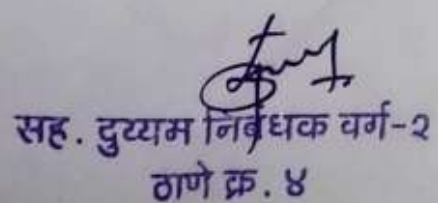 सह. दुय्यम निबंधक वर्ग-२
ठाणे क्र. ४